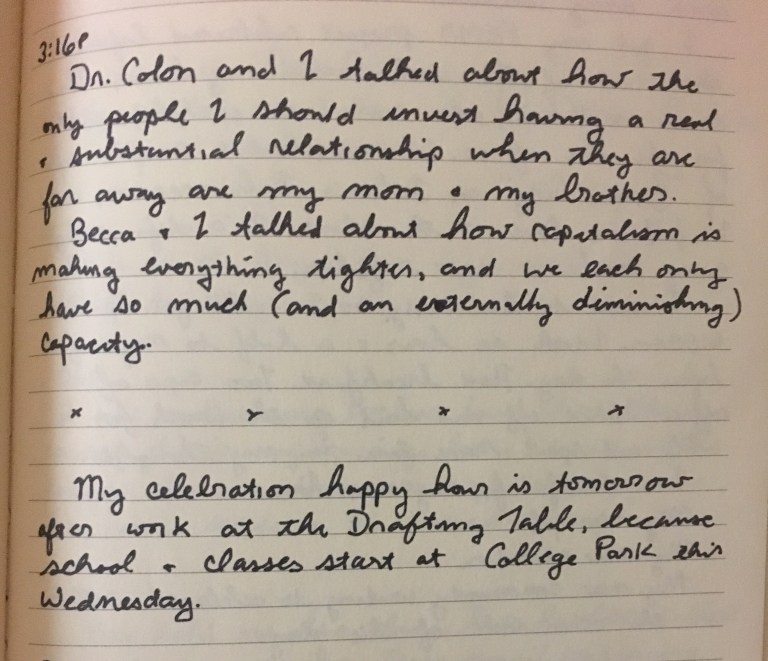 3:16P
Dr. Colon and I talked about how the
only people I should invest having a real
+ substantial relationship when they are
far away are my mom + my brother.
Becca + I talked about how capitalism is
making everything tighter, and we each only
have so much (and an externally diminishing)
capacity.
x x x x
My celebration happy hour is tomorrow
after work at the Drafting Table, because
school + classes start at College Park this
Wednesday.